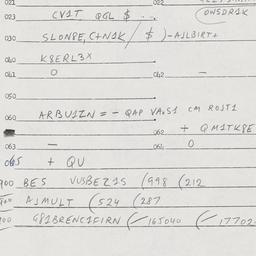 021 022
023 CV1T QGL $ .. (OWSDR1K
030 SLON8E, C+N1K / $ )-A1LBIRT+
040 K8ERL3X
041 0 042 —
050
060 ARBU1ZN = - QAP VA.S1 CM ROST1
062 + QM1TK8E
063 — 064 0
065 + QU
900 BES VUSBEZ1S (998 (212
900 A1MULT (524 (287
900 G81BRENC1FIRN (-165040 (-17702